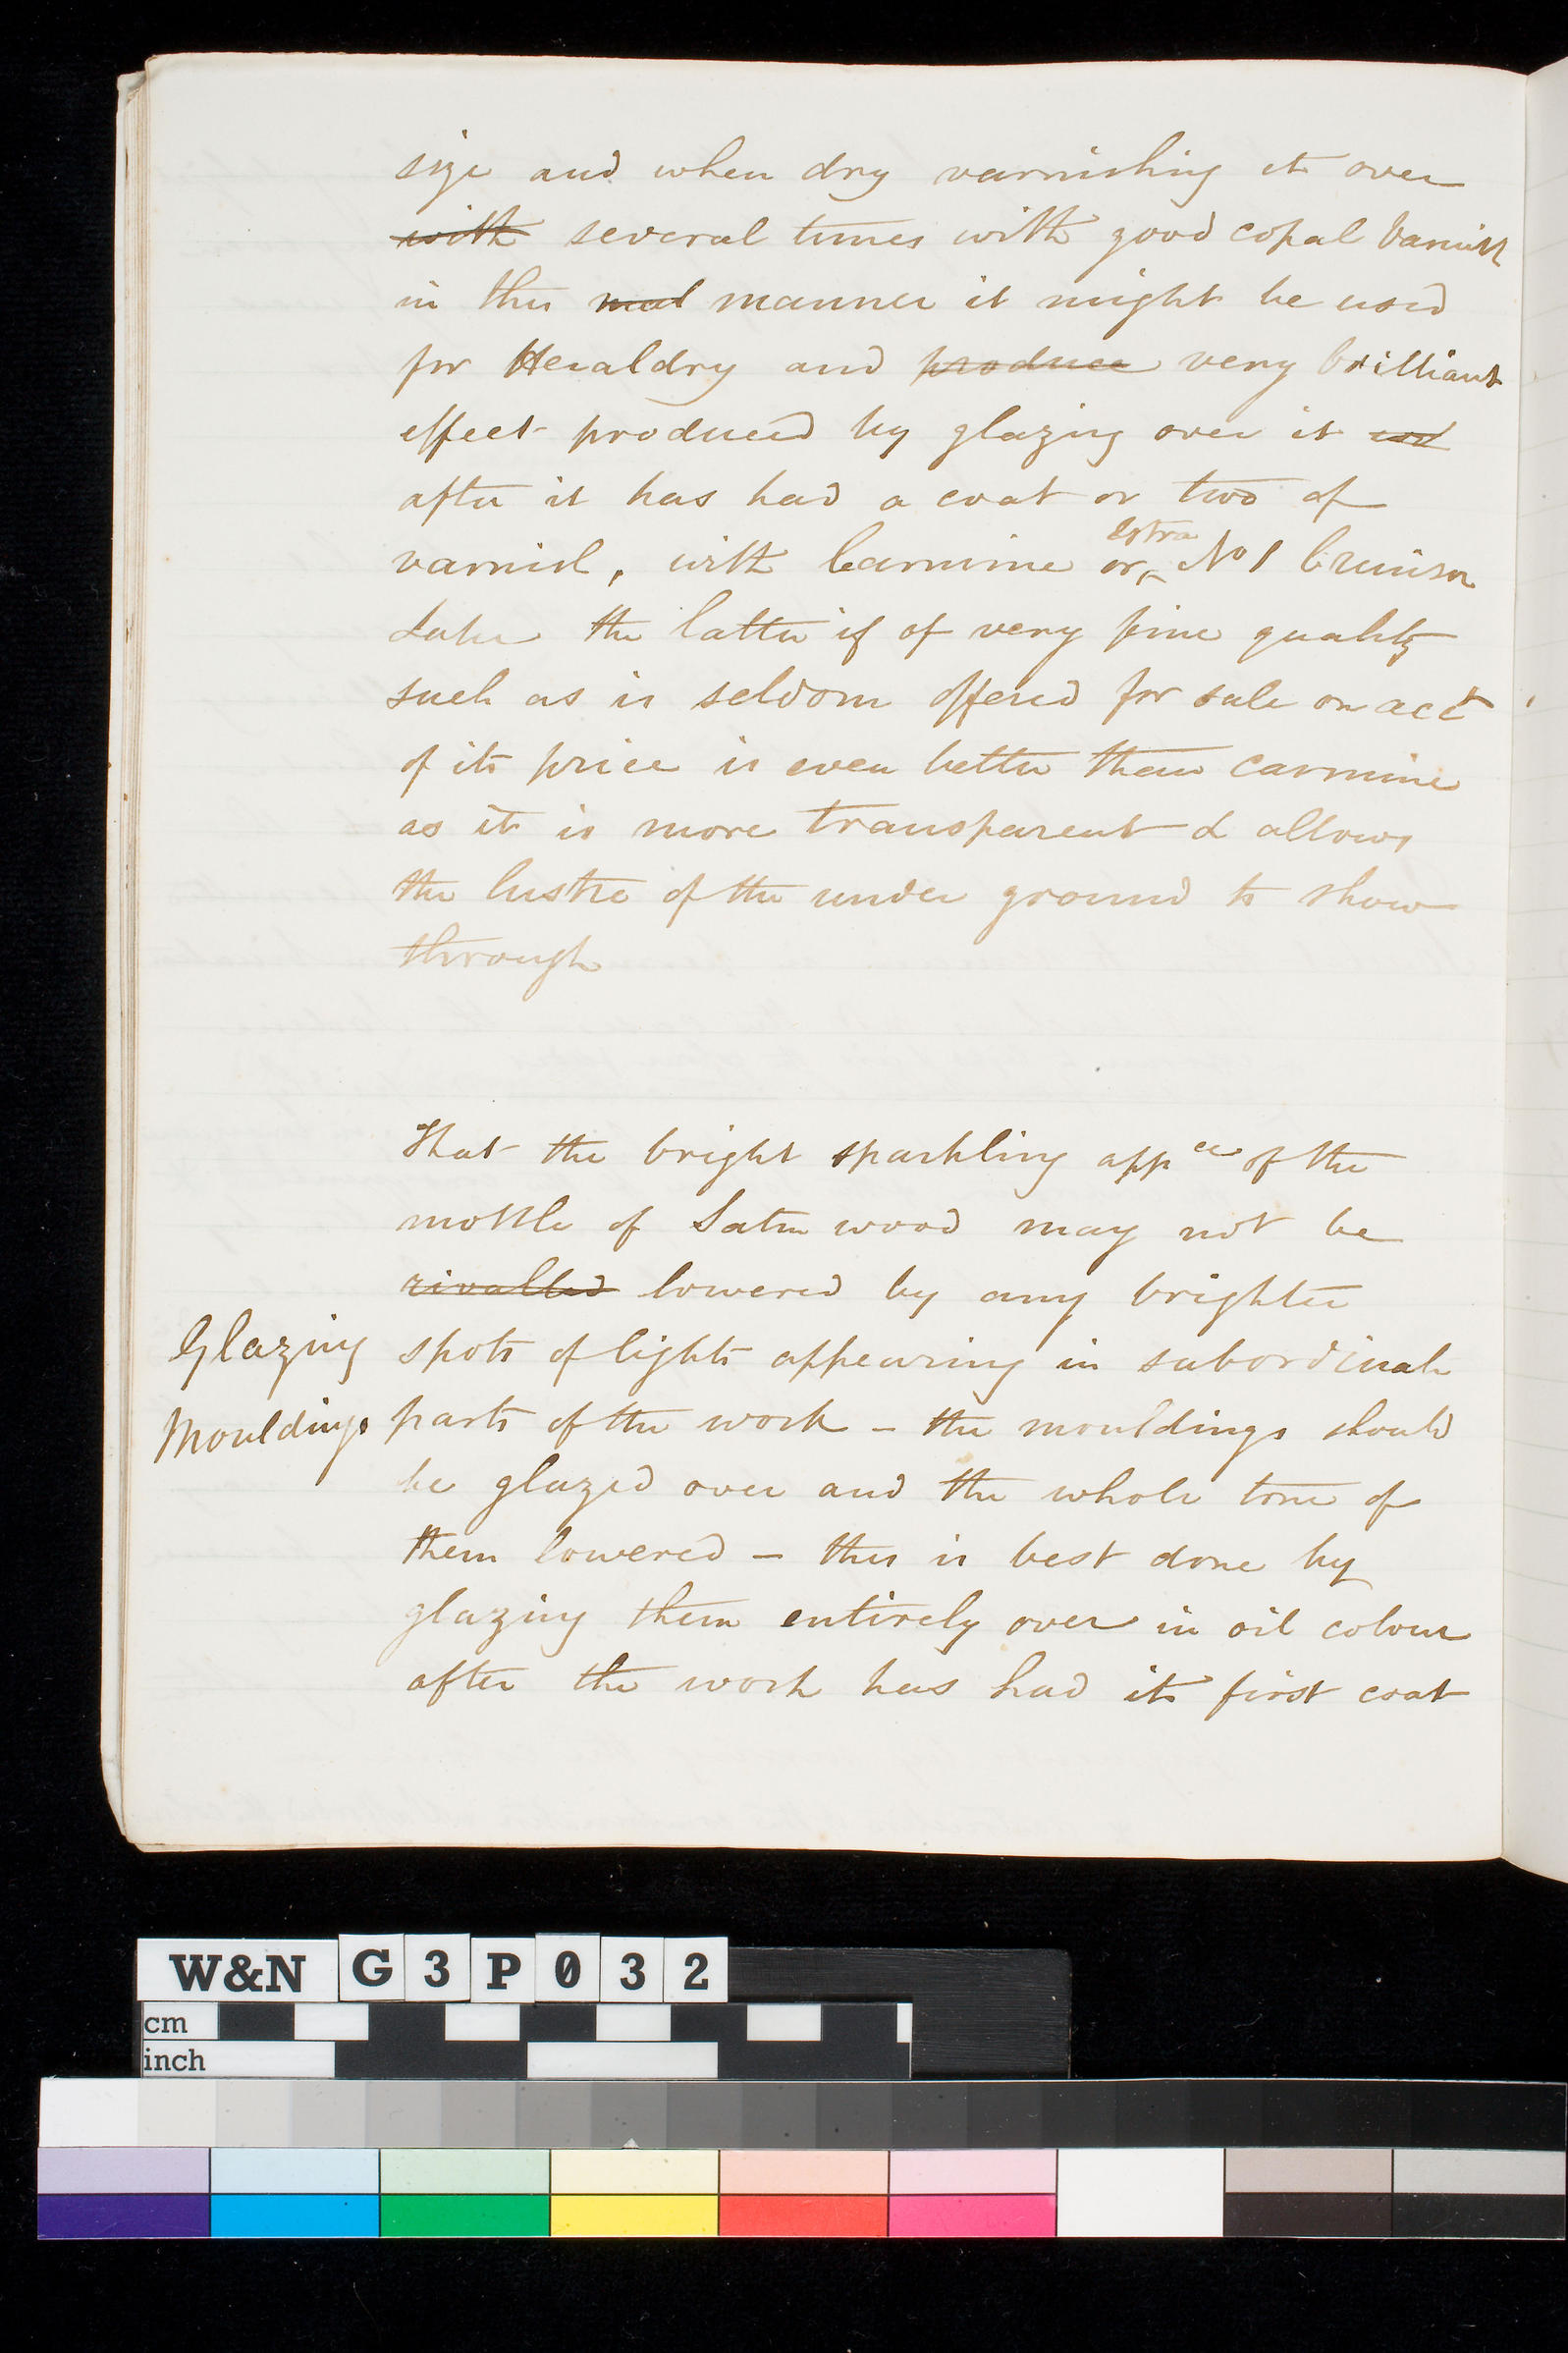 size and when dry varnishing it over
with several times with good copal Varnish
in this mat manner it might be used
for Heraldry and produce very brilliant
effect produced by glazing over it
after it has had a coat or two of
varnish, with Carmine or extra No 1 Crimson
Lake the latter if of very fine quality
such as is seldom offered for sale on acct
of its price is even better than carmine
as it is more transparent & allows
the lustre of the under ground to show
through
That the bright sparkling appce of the
mottle of Satin wood may not be
rivalled lowered by any brighter
Glazing spots of lights appearing in subordinate
Mouldings parts of the work - the mouldings should
be glazed over and the whole tone of
them lowered - this is best done by
glazing them entirely over in oil colour
after the work has had its first coat
W&N G3P032
cm
inch